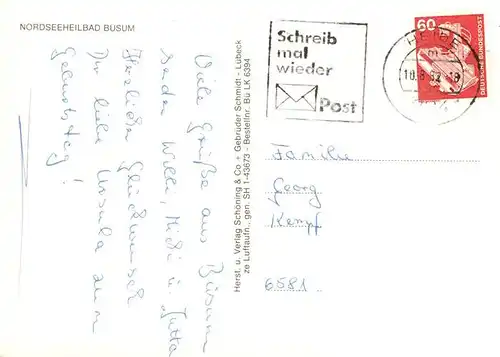 NORDSEEHEILBAD BÜSUM
Viele Grüße aus Büsum
Willi, Heidi u. Jutta
Herzlichen Glückwunsch
Dir liebe Ursula zum
Geburtstag!
Herst. u. Verlag Schöning & Co + Gebrüder Schmidt - Lübeck
ze Luftaufn., gen. SH 1-43673 - Bestellnr. Bü LK 6394
Schreib
mal
wieder
Post
HEIDE
10.8.82-18
60
DEUTSCHE BUNDESPOST
Familie
Georg
Kempf
6581